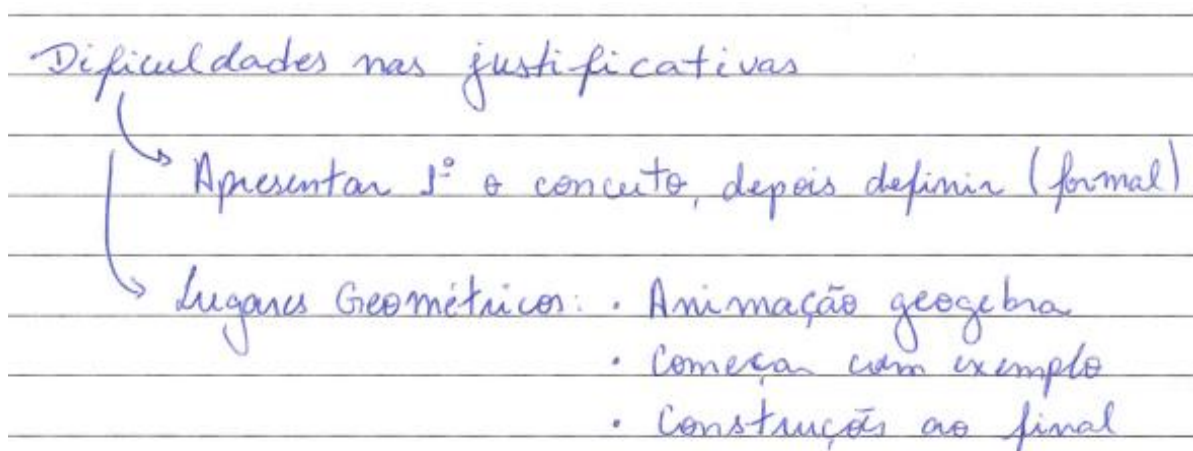 Dificuldades nas justificativas
Apresentar 1º o conceito, depois definir (formal)
Lugares Geométricos: · Animação geogebra
· Começar com exemplo
· Construções ao final